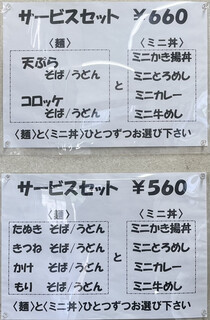 サービスセット ¥660
〈麺〉 〈ミニ丼〉
天ぷら そば/うどん
コロッケ そば/うどん
と
ミニかき揚丼
ミニとろめし
ミニカレー
ミニ牛めし
〈麺〉と〈ミニ丼〉ひとつずつお選び下さい
サービスセット ¥560
〈麺〉 〈ミニ丼〉
たぬき そば/うどん
きつね そば/うどん
かけ そば/うどん
もり そば/うどん
と
ミニかき揚丼
ミニとろめし
ミニカレー
ミニ牛めし
〈麺〉と〈ミニ丼〉ひとつずつお選び下さい